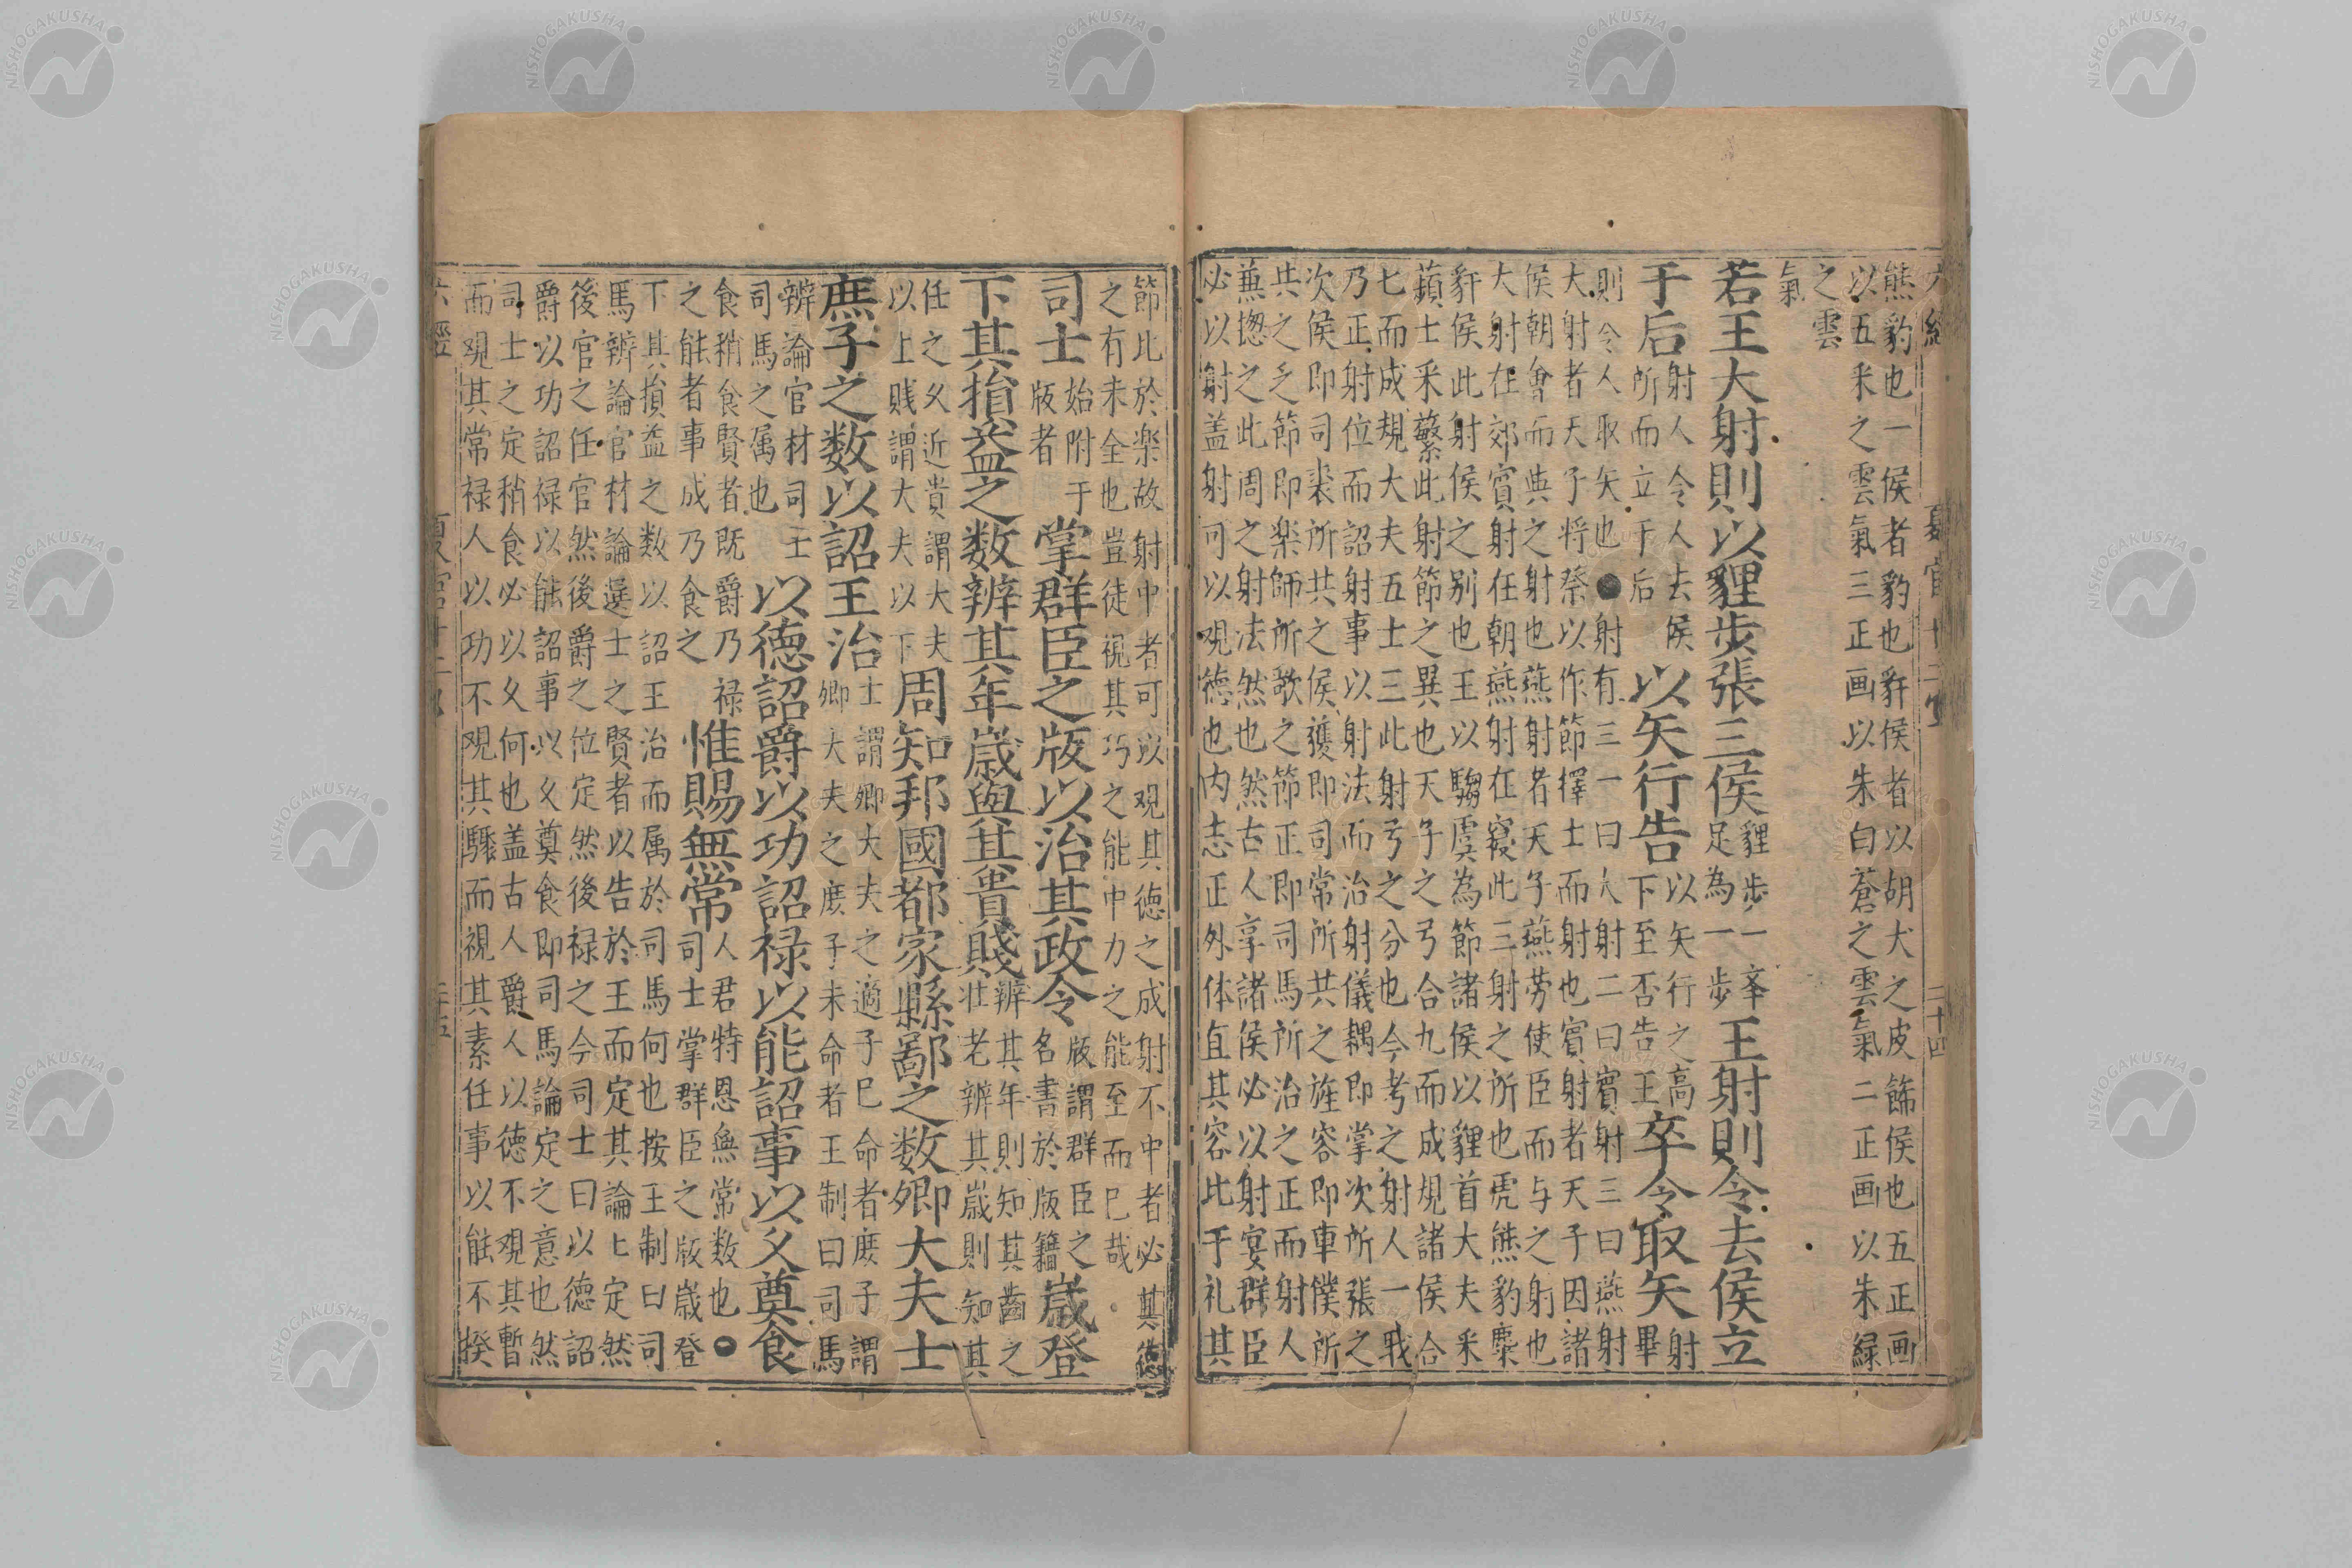 六經 夏官 二十四
熊豹也一侯者豹也豻侯者以胡犬之皮飾侯也五正画
以五采之雲氣三正画以朱白蒼之雲氣二正画以朱緑
之雲
氣
若王大射則以貍步張三侯
貍步一夆
足為一步
王射則令去侯立
于后
射人令人去侯
所而立于后
以矢行告
以矢行之高
下至否告王
卒令取矢
射
畢
則令人取矢也●射有三一曰大射二曰賓射三曰燕射
大射者天子将祭以作節擇士而射也賓射者天子因諸
侯朝會而典之射也燕射者天子燕劳使臣而与之射也
大射在郊賓射在朝燕射在寝此三射之所也虎熊豹麋
豻侯此射侯之别也王以騶虞為節諸侯以貍首大夫采
蘋士采蘩此射節之異也天子之弓合九而成規諸侯合
七而成規大夫五士三此射弓之分也今考之射人一戰
乃正射位而詔射事以射法而治射儀耦即掌次所張之
次侯即司裘所共之侯獲即司常所共之旌容即車僕所
共之乏節即楽師所歌之節正即司馬所治之正而射人
蕪揔之此周之射法然也然古人享諸侯必以射宴群臣
必以射盖射可以观徳也内志正外体直其容此于礼其
節比於楽故射中者可以观其德之成射不中者必其德
之有未全也豈徒視其巧之能中力之能至而已哉
司士
始附于
版者
掌群臣之版以治其政令
版謂群臣之
名書於版籍
歳登
下其損益之数辨其年歳與其貴賤
辨其年則知其齒之
壮老辨其歳則知其
任之久近貴謂大夫
以上贱謂大夫以下
周知邦國都家縣鄙之数卿大夫士
庶子之数以詔王治
士謂卿大夫之適子已命者庶子謂
卿大夫之庶子未命者王制曰司馬
辨論官材司士
司馬之属也
以徳詔爵以功詔禄以能詔事以久奠食
食稍食賢者既爵乃禄
之能者事成乃食之
惟賜無常
人君特恩無常数也●
司士掌群臣之版歳登
下其損益之数以詔王治而属於司馬何也按王制曰司
馬辨論官材論選士之賢者以告於王而定其論论定然
後官之任官然後爵之位定然後禄之今司士曰以德詔
爵以功詔禄以能詔事以久奠食即司馬論定之意也然
司士之定稍食必以久何也盖古人爵人以徳不观其暫
而观其常禄人以功不观其驟而視其素任事以能不揆
六經 夏官 二十五
NISHOGAKUSHA